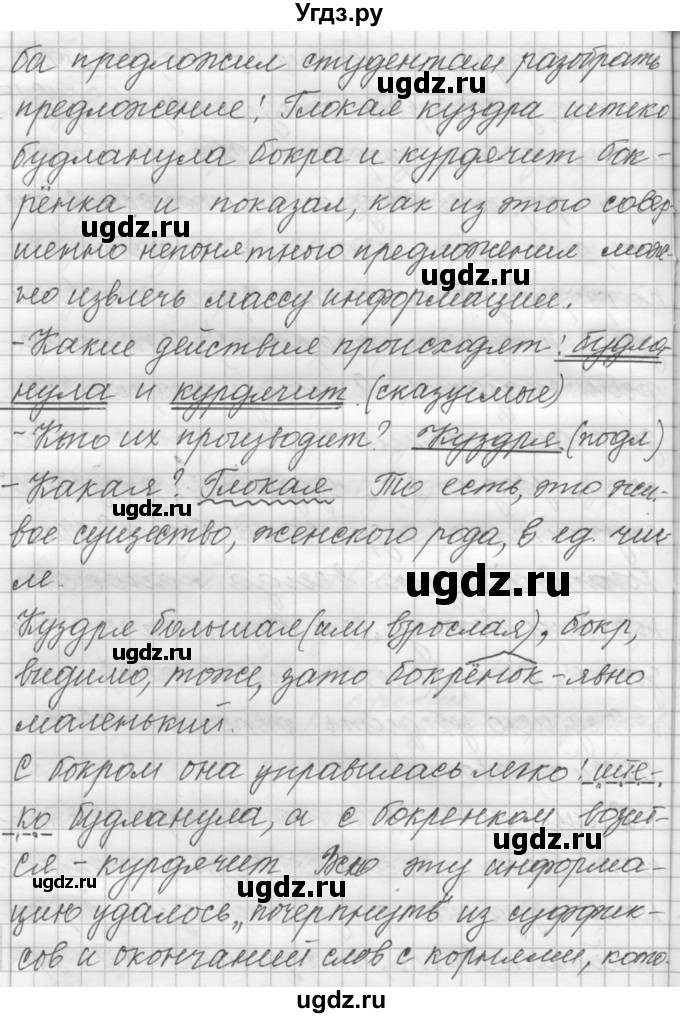 Угдз.ру
ба предложил студентам разобрать
ugdz.ru
предложение: Глокая куздра штеко
ugdz.ru
будланула бокра и курдячит бок-
рёнка и показал, как из этого совер-
ugdz.ru
шенно непонятного предложения мож-
ugdz.ru
но извлечь массу информации.
- Какие действия происходят: будла-
ugdz.ru
нула и курдячит. (сказуемые)
- Кто их производит? Куздра (подл)
- Какая? Глокая То есть, это жи-
ugdz.ru
вое существо, женского рода, в ед. чис-
ugdz.ru
ле.
Куздра большая (или взрослая), бокр,
ugdz.ru
видимо, тоже, зато бокрёнок - явно
маленький.
ugdz.ru
С бокром она управилась легко: ште-
ко будланула, а с бокренком возит-
ugdz.ru
ся - курдячит Всю эту информа-
ugdz.ru
ugdz.ru
цию удалось „почерпнуть" из суффик-
ugdz.ru
сов и окончаний слов с корнями, кото-
ugdz.ru